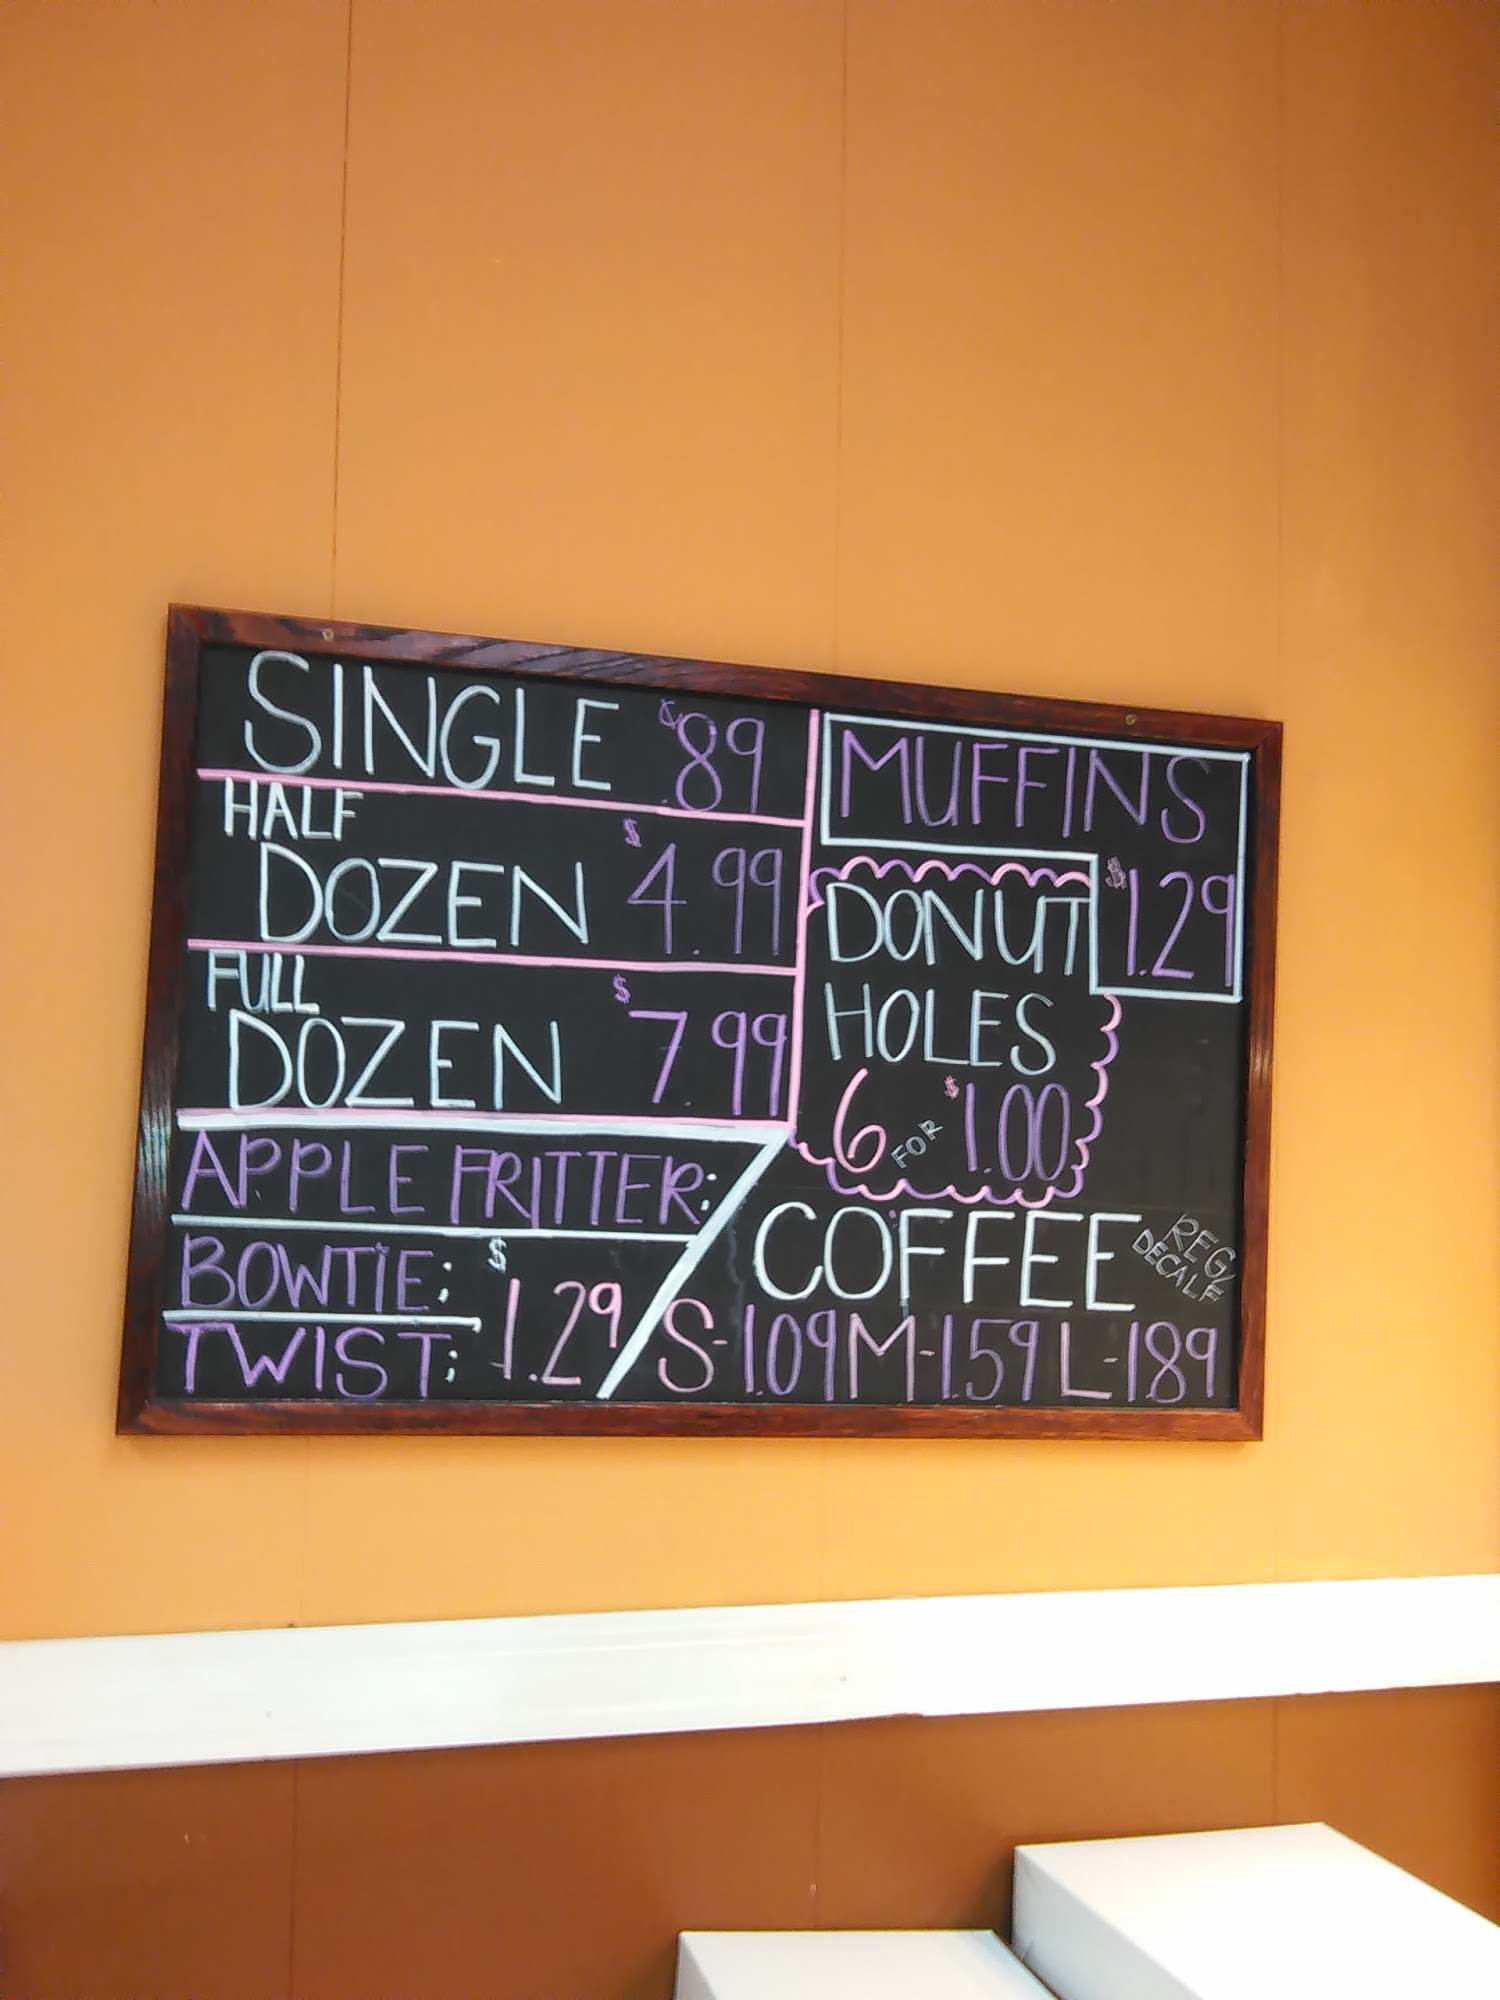 SINGLE $.89
HALF
DOZEN $4.99
FULL
DOZEN $7.99
APPLE FRITTER:
BOWTIE: $1.29
TWIST:
MUFFINS
$1.29
DONUT
HOLES
6 FOR $1.00
COFFEE REG/
DECALF
S-1.09 M-1.59 L-1.89